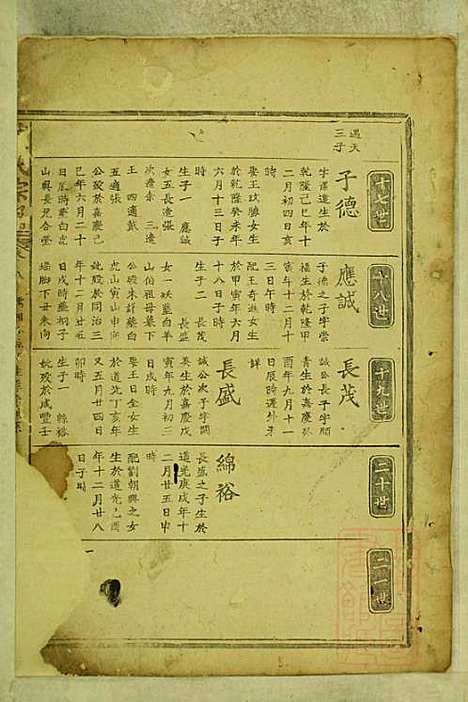 遇天
三子
十七世
子德
字𢋫遠生於
乾隆己巳年十
二月初四日亥
時
娶王玟勝女生
於乾隆癸未年
六月十三日子
時
生子一 應誠
女五長適張
次適余 三適
王 四適戴
五適張
公歿於嘉慶己
巳年六月二十
日辰時葬白羊
山與長兄合塋
十八世
應誠
子德之子字崇
福生於乾隆甲
寅年十二月十
八日戌時
配王奇遊女生
於甲寅年六月
十八日子時
生子二 長茂
長盛
女一 妖藍白羊
山伯祖母墓下
公歿未許葬白
虎山寅山申向
妣歿於同治三
日戌時葬
塜脚下丑未向
十九世
長茂
誠公長子字
青生於嘉慶於
酉年九月十一
日辰時遷外未
詳
長盛
誠公次子字開
基生於嘉慶戊
寅年九月初三
日戌時
娶王日全女生
於道光丁亥年
又五月廿四日
卯時
生子一 緜裕
妣歿於咸豐壬
二十世
綿裕
長盛之子生於
道光庚戌年十
二月廿五日申
時
配劉朝興之女
生於道光己酉
年十二月廿八
日子時
二一世